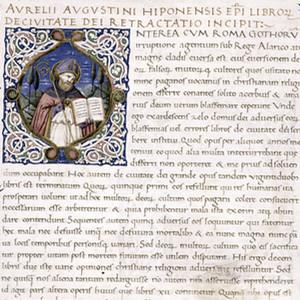 AVRELII AVGVSTINI HIPONENSIS EPI LIBROR
DECIVITATE DEI RETRACTATIO INCIPIT:
NTEREA CVM ROMA GOTHORV
irruptione agentium sub Rege Alarico at
magne cladis euersa est eius euersionem
deor falsor, multorq cultores quos usitato
mine paganos uocamus in christianam religio
nem referre conantes solito acerbius & ama
deum uerum blasfemare ceperunt Vnde
ego exardescens zelo domus dei aduersus
blasfemias uel errores libros de ciuitate dei
bere institui Quod opus per aliquot annos me
eo quod alia multa intercurrebant que
differre non oporteret & me prius ad
dum occupabant Hoc autem de ciuitate dei grande opus tandem
libris est terminatum Quorq quinque primi eos refellunt qui res humanas ita
prosperari uolunt ut ad hoc multorq deorum cultum quos pagani colere consuerunt
necessarium esse arbitrentur & quia prohibentur mala ista exoriri atq abun
dare contendunt Sequentes autem quinq aduersus eos loquuntur qui fatentur
hec mala nec defuisse unq nec defutura mortalibus & ea nunc magna nunc
ua locis temporibus personisq uariari Sed deorq multorq cultum quo eis sacrificatur
propter uitam post mortem futuram esse utilem disputant His ergo decem
libris due iste uane opiniones christiane religioni aduersarie refelluntur Sed
ne quisq nos aliena tantum redarguisse non autem nostra asseruisse
id agit pars altera operis huius que libris xii continetur Quanq ubi opus est